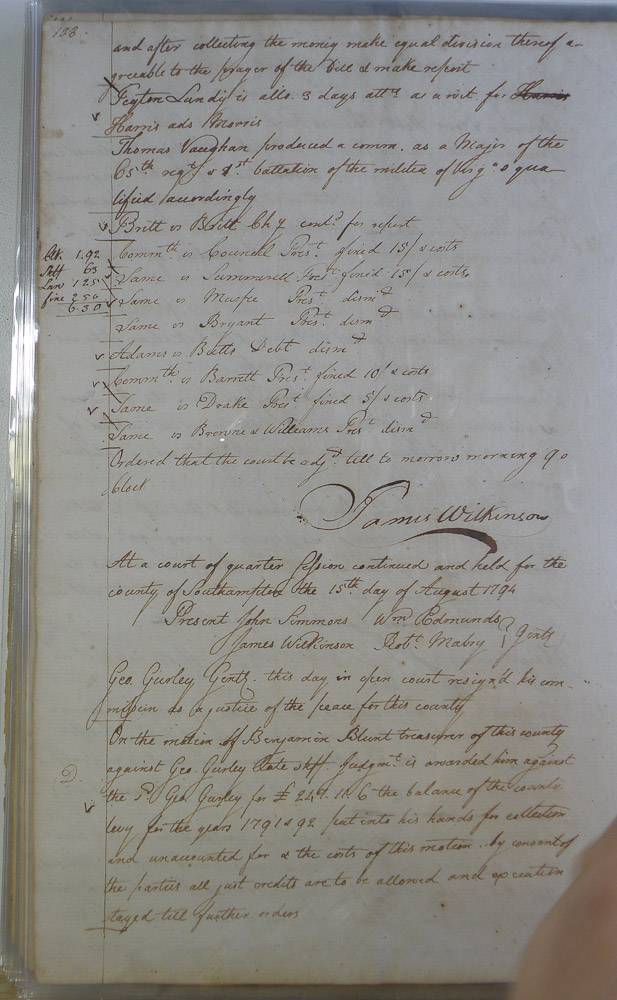 138
and after collecting the money make equal division thereof a-
greeable to the prayer of the Bill & make report
Peyton Lundy is allo. 3 days attce. as a wit. for Harris
Harris ads Morris
Thomas Vaughan produced a comm. as a Major of the
65th regt & 1st battalion of the militia of Virga. & qua
lified accordingly
Britt vs Britt Chy contd. for report
Commth. vs Council Prest. fined 15/ & costs
Clk. 1.92
Shff 63
Law 1 25
fine 2 50
6.30
Same vs Summerell Prest fined 15/ & costs
Same vs Prest. dismd
Same vs Bryant Prest. dismd
Adams vs Betts Debt dismd
Commth vs Barrett Prest. fined 10/ & costs
Same vs Drake Prest fined 5/ & costs
Same vs Browne & Williams Prest dismd
Ordered that the court be adjd. till to morrow morning 9 o
clock
James Wilkinson
At a court of quarter session continued and held for the
county of Southampton the 15th day of August 1794
Present John Simmons Wm Edmunds
James Wilkinson Robt. Mabry } Gents
Geo. Gurley Gent. this day in open court resign'd his com-
mission as a justice of the peace for this county
On the motion of Benjamin Blunt treasurer of this county
against Geo. Gurley late shff Judgmt. is awarded him against
D.
the sd. Geo. Gurley for £ the balance of the county
levy for the years 1791 & 92 put into his hands for collection
and unaccounted for & the costs of this motion. by consent of
the parties all just credits are to be allowed and execution
stayed till further orders